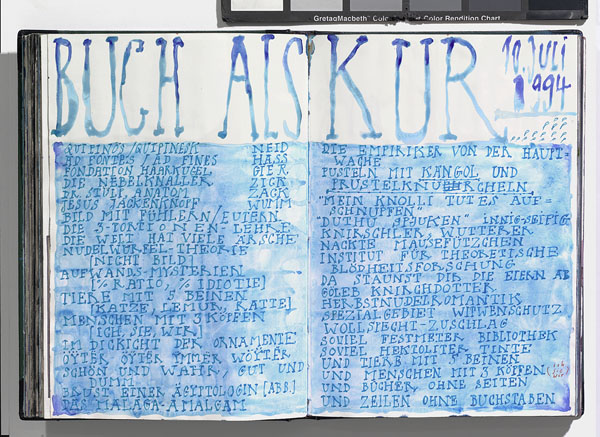 GretagMacbeth™ Color Rendition Chart
BUCH ALS KUR
10. JULI
1994
NEID
AD FONTES / AD FINES HASS
FONDATION HAARKUGEL GIER
DIE NEBELKNALLER ZICK
ZACK
JESUS JACKENKNOPF WUMM
BILD MIT FÜHLERN / EUTERN
DIE 3-TONIONEN-LEHRE
DIE WELT HAT VIELE ÄRSCHE
NUDELWURZEL-THEORIE
[NICHT BILD]
AUFWANDS-MYSTERIEN
[½ RATIO, ½ IDIOTIE]
TIERE MIT 5 BEINEN
[KATZE, LEMUR, RATTE]
MENSCHEN MIT 3 KÖPFEN
[ICH, SIE, WIR]
IM DICKICHT DER ORNAMENTE
ÖYTER ÖYTER YMMER WÖYTER
SCHÖN UND WAHR, GUT UND
DUMM
BRUST EINER ÄGYPTOLOGIN [ABB.]
DAS MALAGA-AMALGAM
DIE EMPIRIKER VON DER HAUPT-
WACHE
PUSTELN MIT KANGOL UND
"MEIN KNOLLI TUT ES AUF-
SCHNUPFEN"
"DUTHU SPHUKEN" INNIG-SEIFIG
KNIRSCHLER WÜTTERER
NACKTE MAUSEFÖTZCHEN
INSTITUT FÜR THEORETISCHE
BLÖDHEITSFORSCHUNG
DA STAUNST DIR DIE EIERN AB
GOLER KNIRCHDOTTER
HERBSTNUDELROMANTIK
SPEZIALGEBIET WIPWENSCHUTZ
WOLLSPECHT-ZUSCHLAG
SOVIEL FESTMETER BIBLIOTHEK
SOVIEL HEKTOLITER TINTE
UND TIERE MIT 5 BEINEN
UND MENSCHEN MIT 3 KÖPFEN
UND BÜCHER OHNE SEITEN
UND ZEILEN OHNE BUCHSTABEN